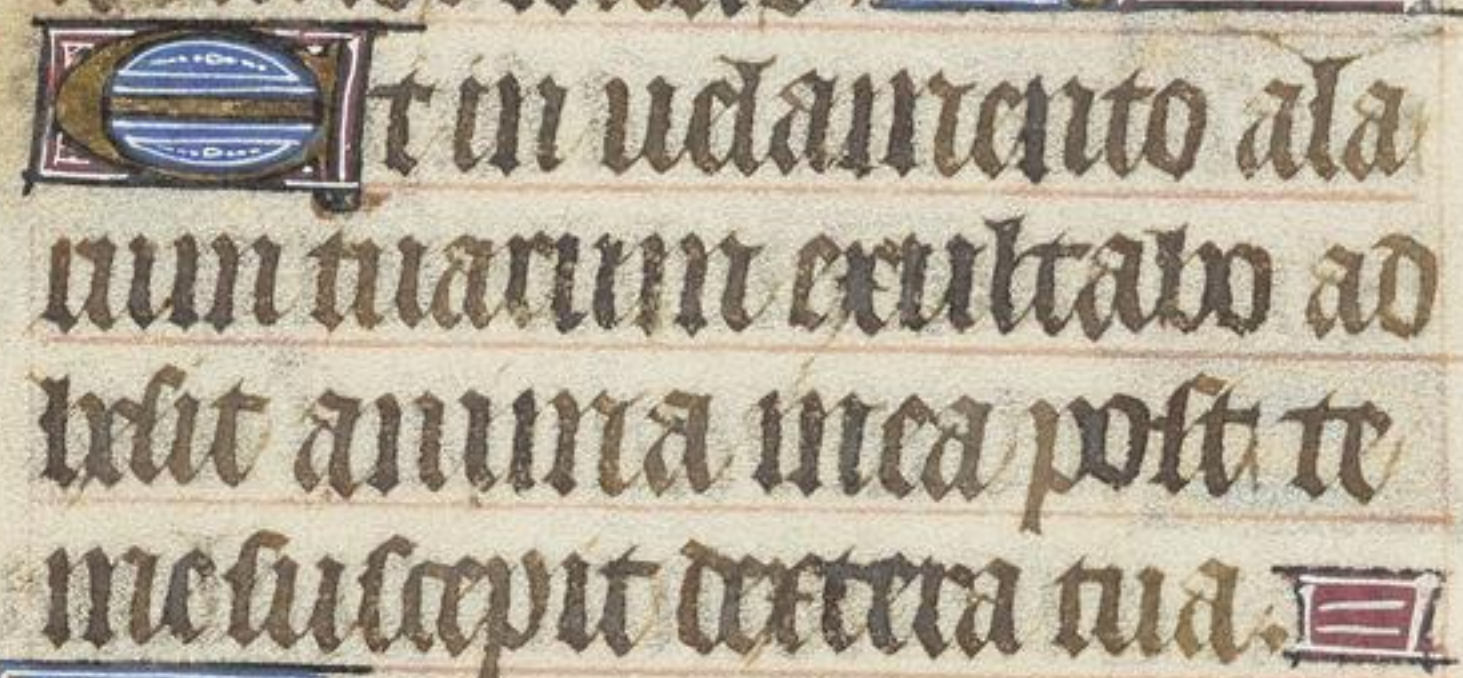 Et in uelamento ala
rum tuarum exultabo ad
hesit anima mea post te
me suscepit dextera tua.